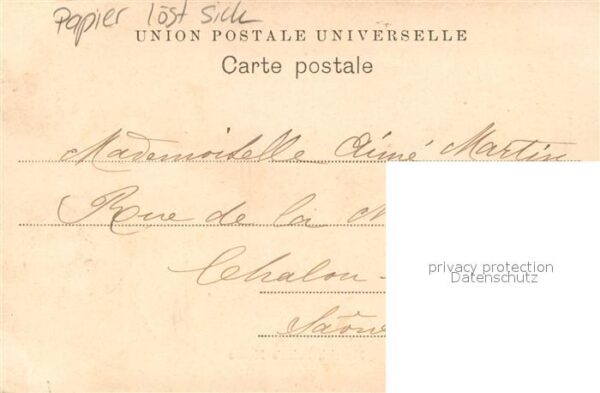 Papier löst sich
UNION POSTALE UNIVERSELLE
Carte postale
Mademoiselle Aimé Martin
Rue de la
Chalon-
privacy protection
Datenschutz
Saône